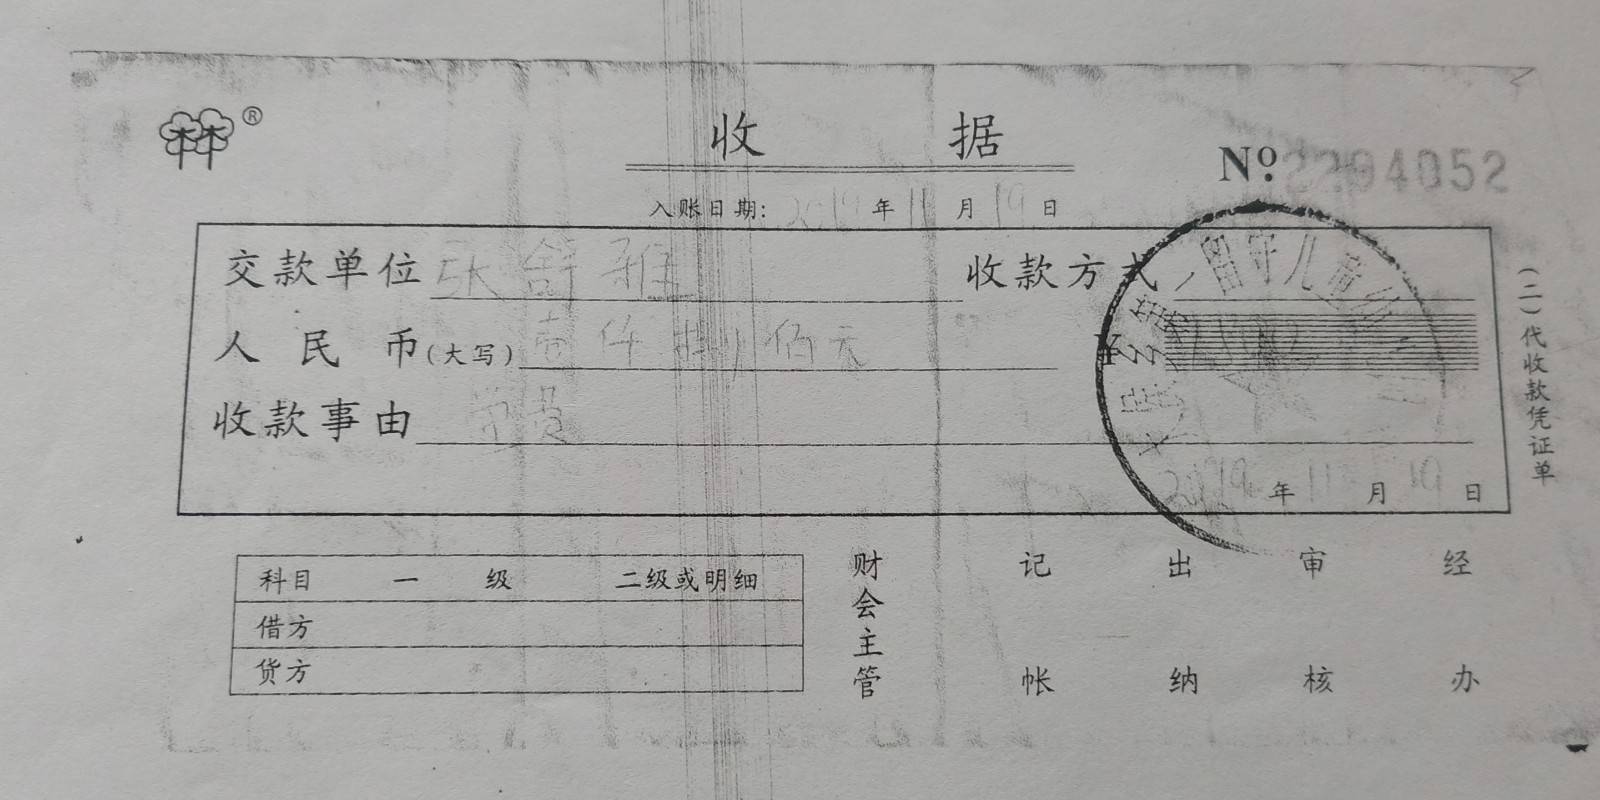 ®
收 据
№ 2204052
入账日期: 2019年11月19日
交款单位 张舒雅 收款方式
人民币(大写) 壹仟捌佰元 ¥
收款事由 学费
2019年11月19日
(二)代收款凭证单
第一留守儿童幼
科目 一级 二级或明细
借方
货方
财会主管 记帐 出纳 审核 经办